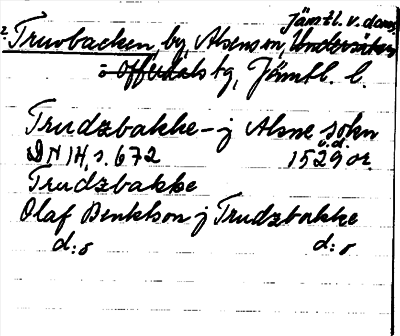 Jämtl. v. doms.
2. Truvbacken by, Alsens sn, Undersåkers
o Offerdals tg, Jämtl. l.
Trudzbakke - j Alsne sokn
DN 14, s. 672 1529 or. o.d.
Trudzbakke
Olaf Benktson j Trudzbakke
d:o d:o